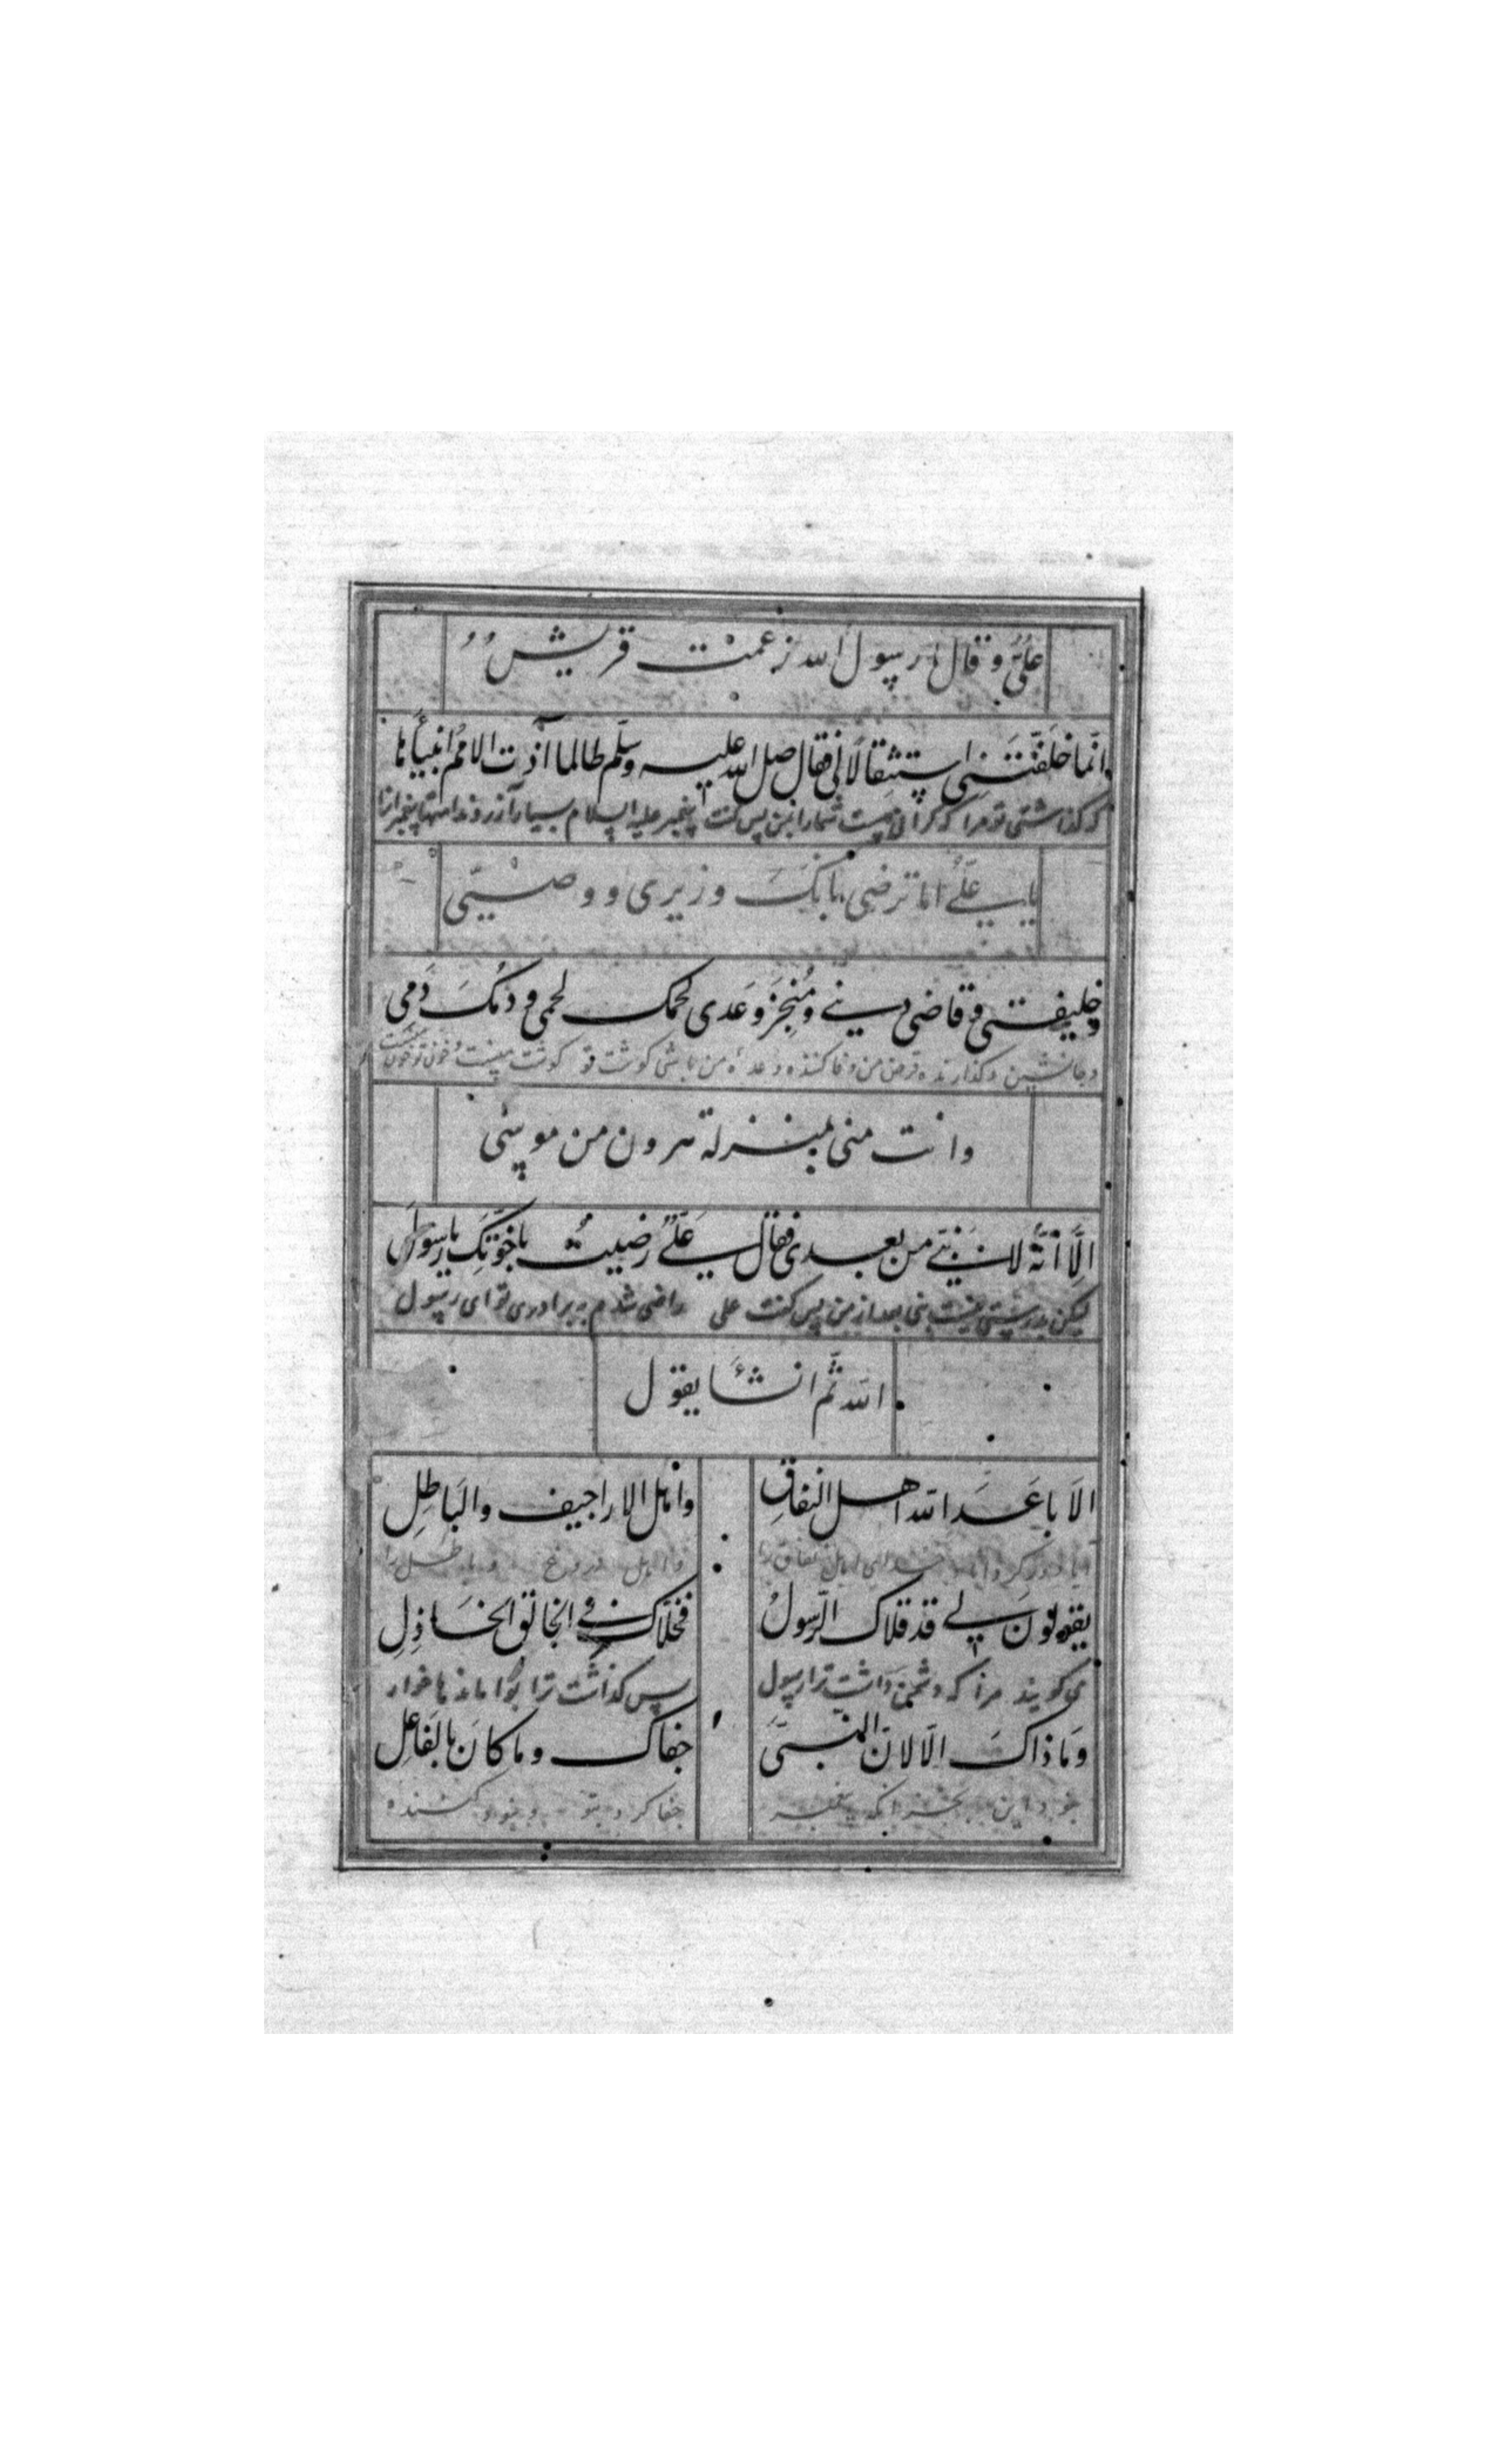 علیّ و قال یا رسول الله زعمت قریش
انّما خلّفتَنی استثقالًا لی فقال صلی الله علیه وسلّم طالما آذت الامم انبیاءها
که گذاشتی تو مرا که گرانیست شما را از من پس گفت پیغمبر علیه السلام بسیار آزردند امتها پیغمبرانرا
یا علیّ اما ترضی بانّک وزیری و وصیّتی
و خلیفتی و قاضی دینی و مُنجِز وَعدی لحمک لحمی و دمُکَ دَمی
و جانشین و گذارنده قرض من و وفا کننده وعدهٔ من باشی گوشت تو گوشت منست و خون تو خون
وانت منی بمنزلة هرون من موسی
الّا انّهُ لا نبیّ من بعدی فقال علیّ رضیتُ باخوّتِکَ یا رسول
لیکن بدرستی نیست نبی بعد از من پس گفت علی راضی شدم به برادری تو ای رسول
الله ثمّ انشأ یقول
الَا باعَدَ الله اهل النفاقِ واهل الاراجیف والبَاطِلِ
یقولون لی قد قلاک الرّسولُ فخلّاک فی الخالق الخاذِلِ
می گویند مرا که دشمن داشت ترا رسول پس گذاشت ترا با وامانده ها خوار
وَما ذاکَ الّا لانّ النّبیَّ جفاک وما کانَ بالفاعِلِ
نبود این بجز آنکه پیغمبر جفا کرد بتو و نبود کننده